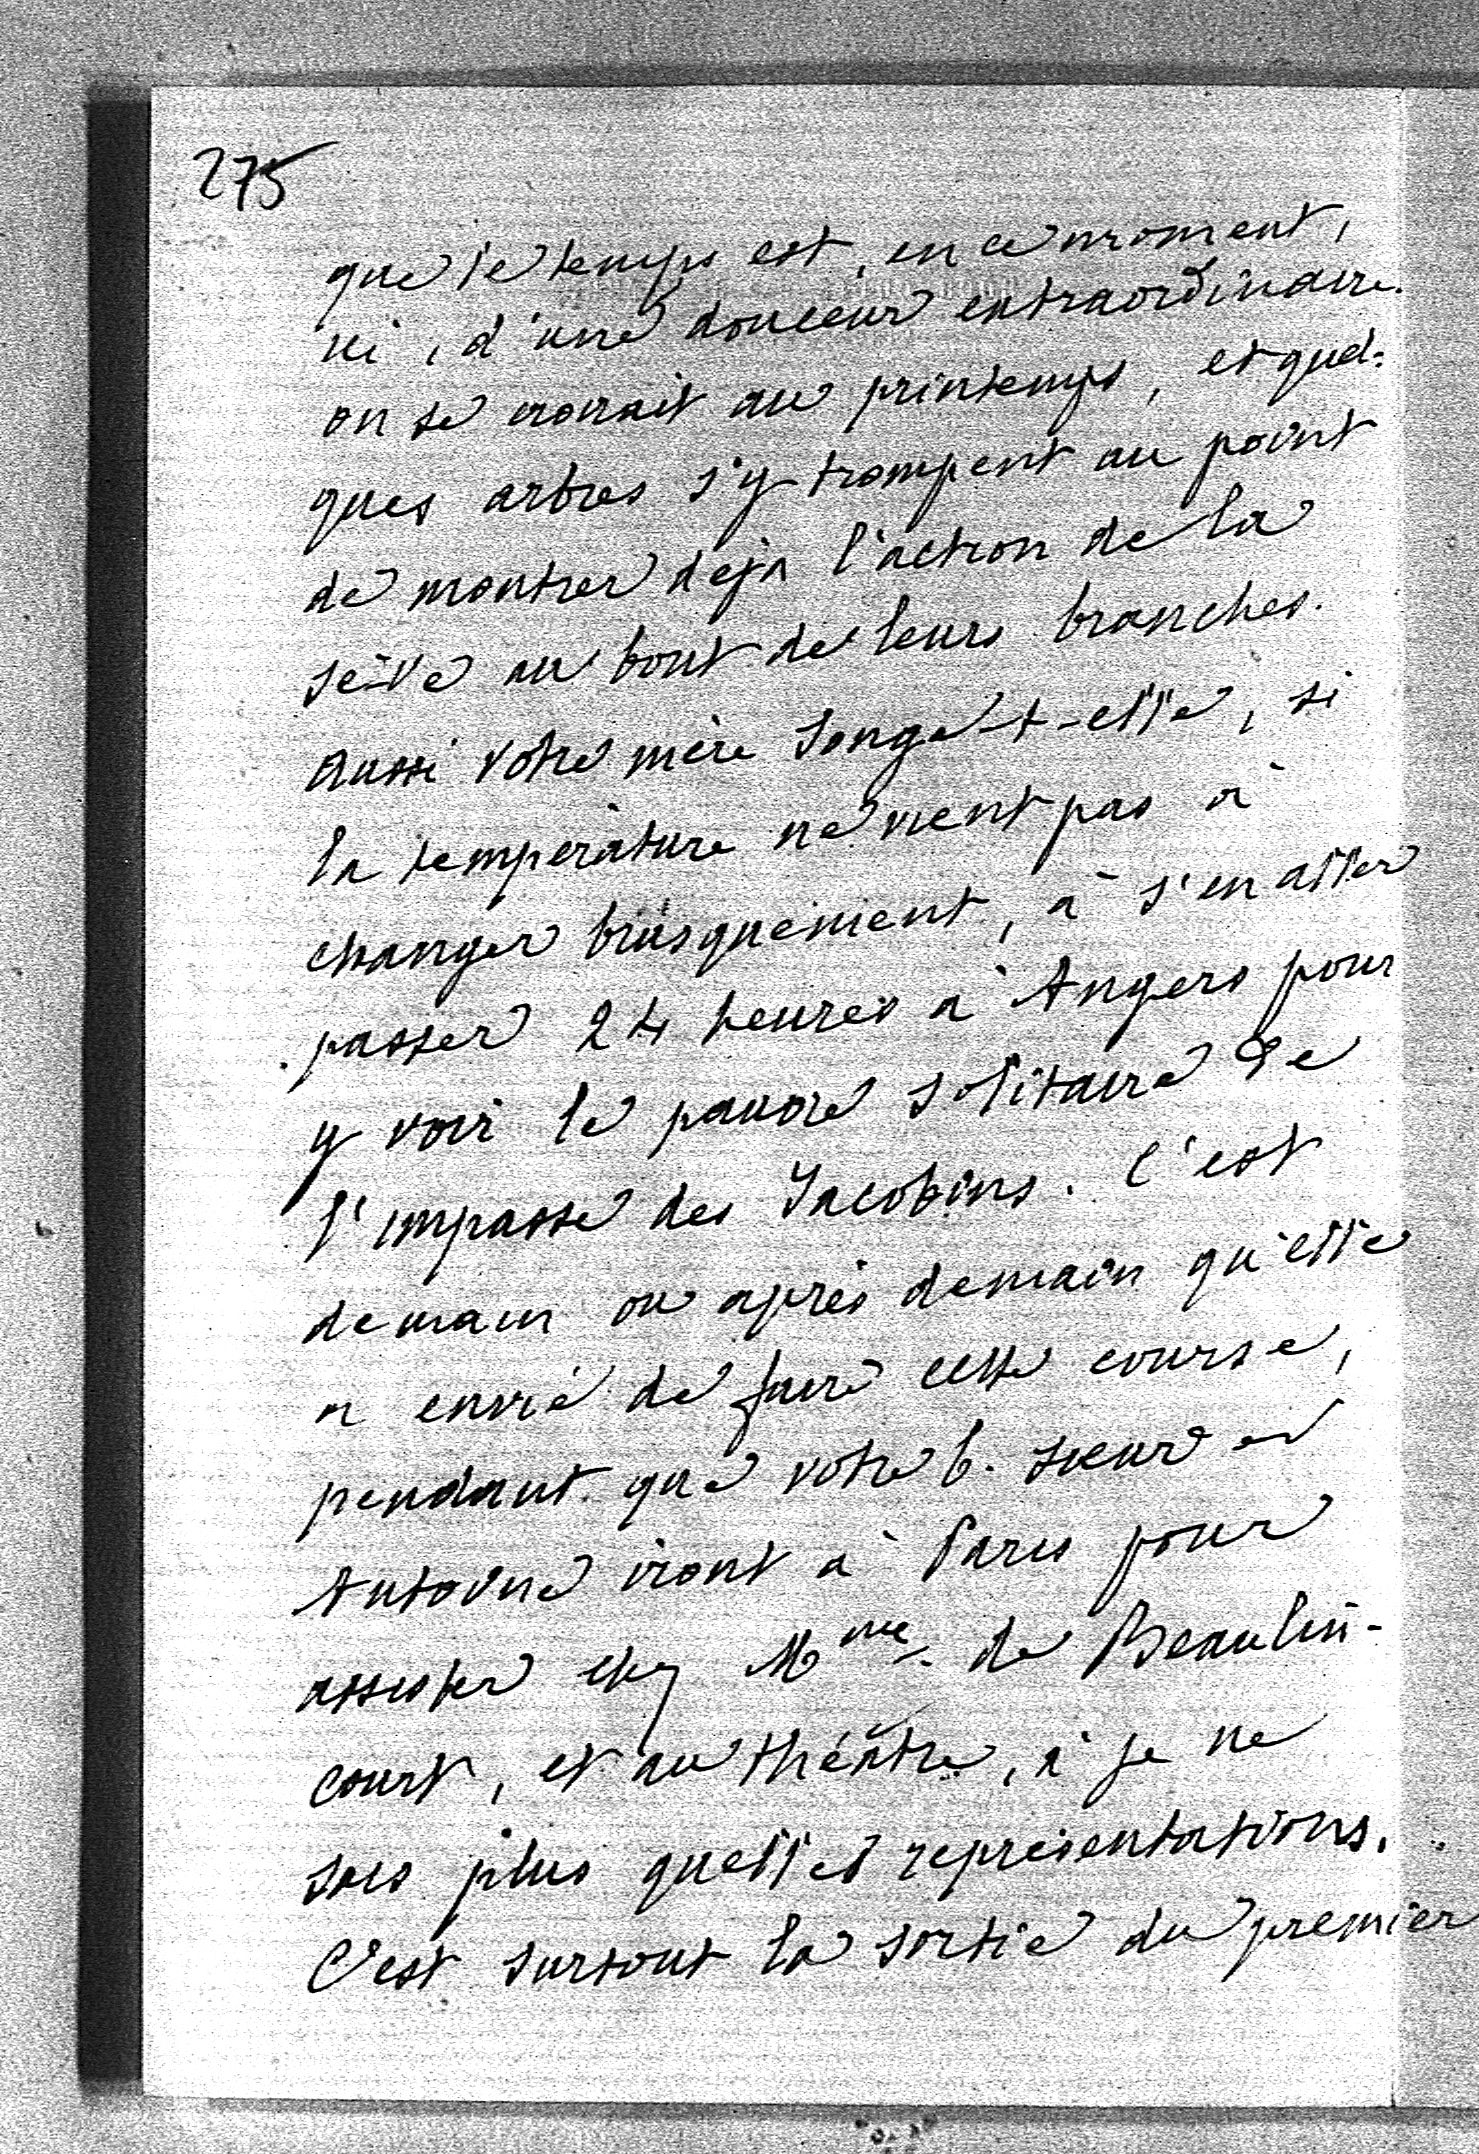 275
que le temps est, en ce moment,
ici, d'une douceur extraordinaire.
on se croirait au printemps, et quel-
ques arbres s'y trompent au point
de montrer déjà l'action de la
sève au bout de leurs branches.
aussi votre mère songe-t-elle, si
la température ne vient pas à
changer brusquement, à s'en aller
passer 24 heures à Angers pour
y voir le pauvre solitaire de
l'impasse des Jacobins. C'est
demain ou après demain qu'elle
a envie de faire cette course,
pendant que votre b. sœur et
Antoine iront à Paris pour
assister chez Mme de Beaulin-
court, et au théâtre, à je ne
sais plus quelles représentations.
C'est surtout la sortie du premier